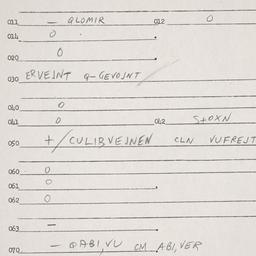 011 — QLOMIR 012 0
014 0
020 0
030 ERVEJNT Q-GEVOJNT
040 0
041 0 042 S+OXN
050 +/CULIBVEJNEN CLN VUFREJT
060 0
061 0
062 0
063 —
070 — QABI,VU CM ABI,VER